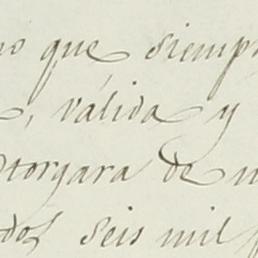 no que, siempr
, válida y
otorgara de
dos seis mil